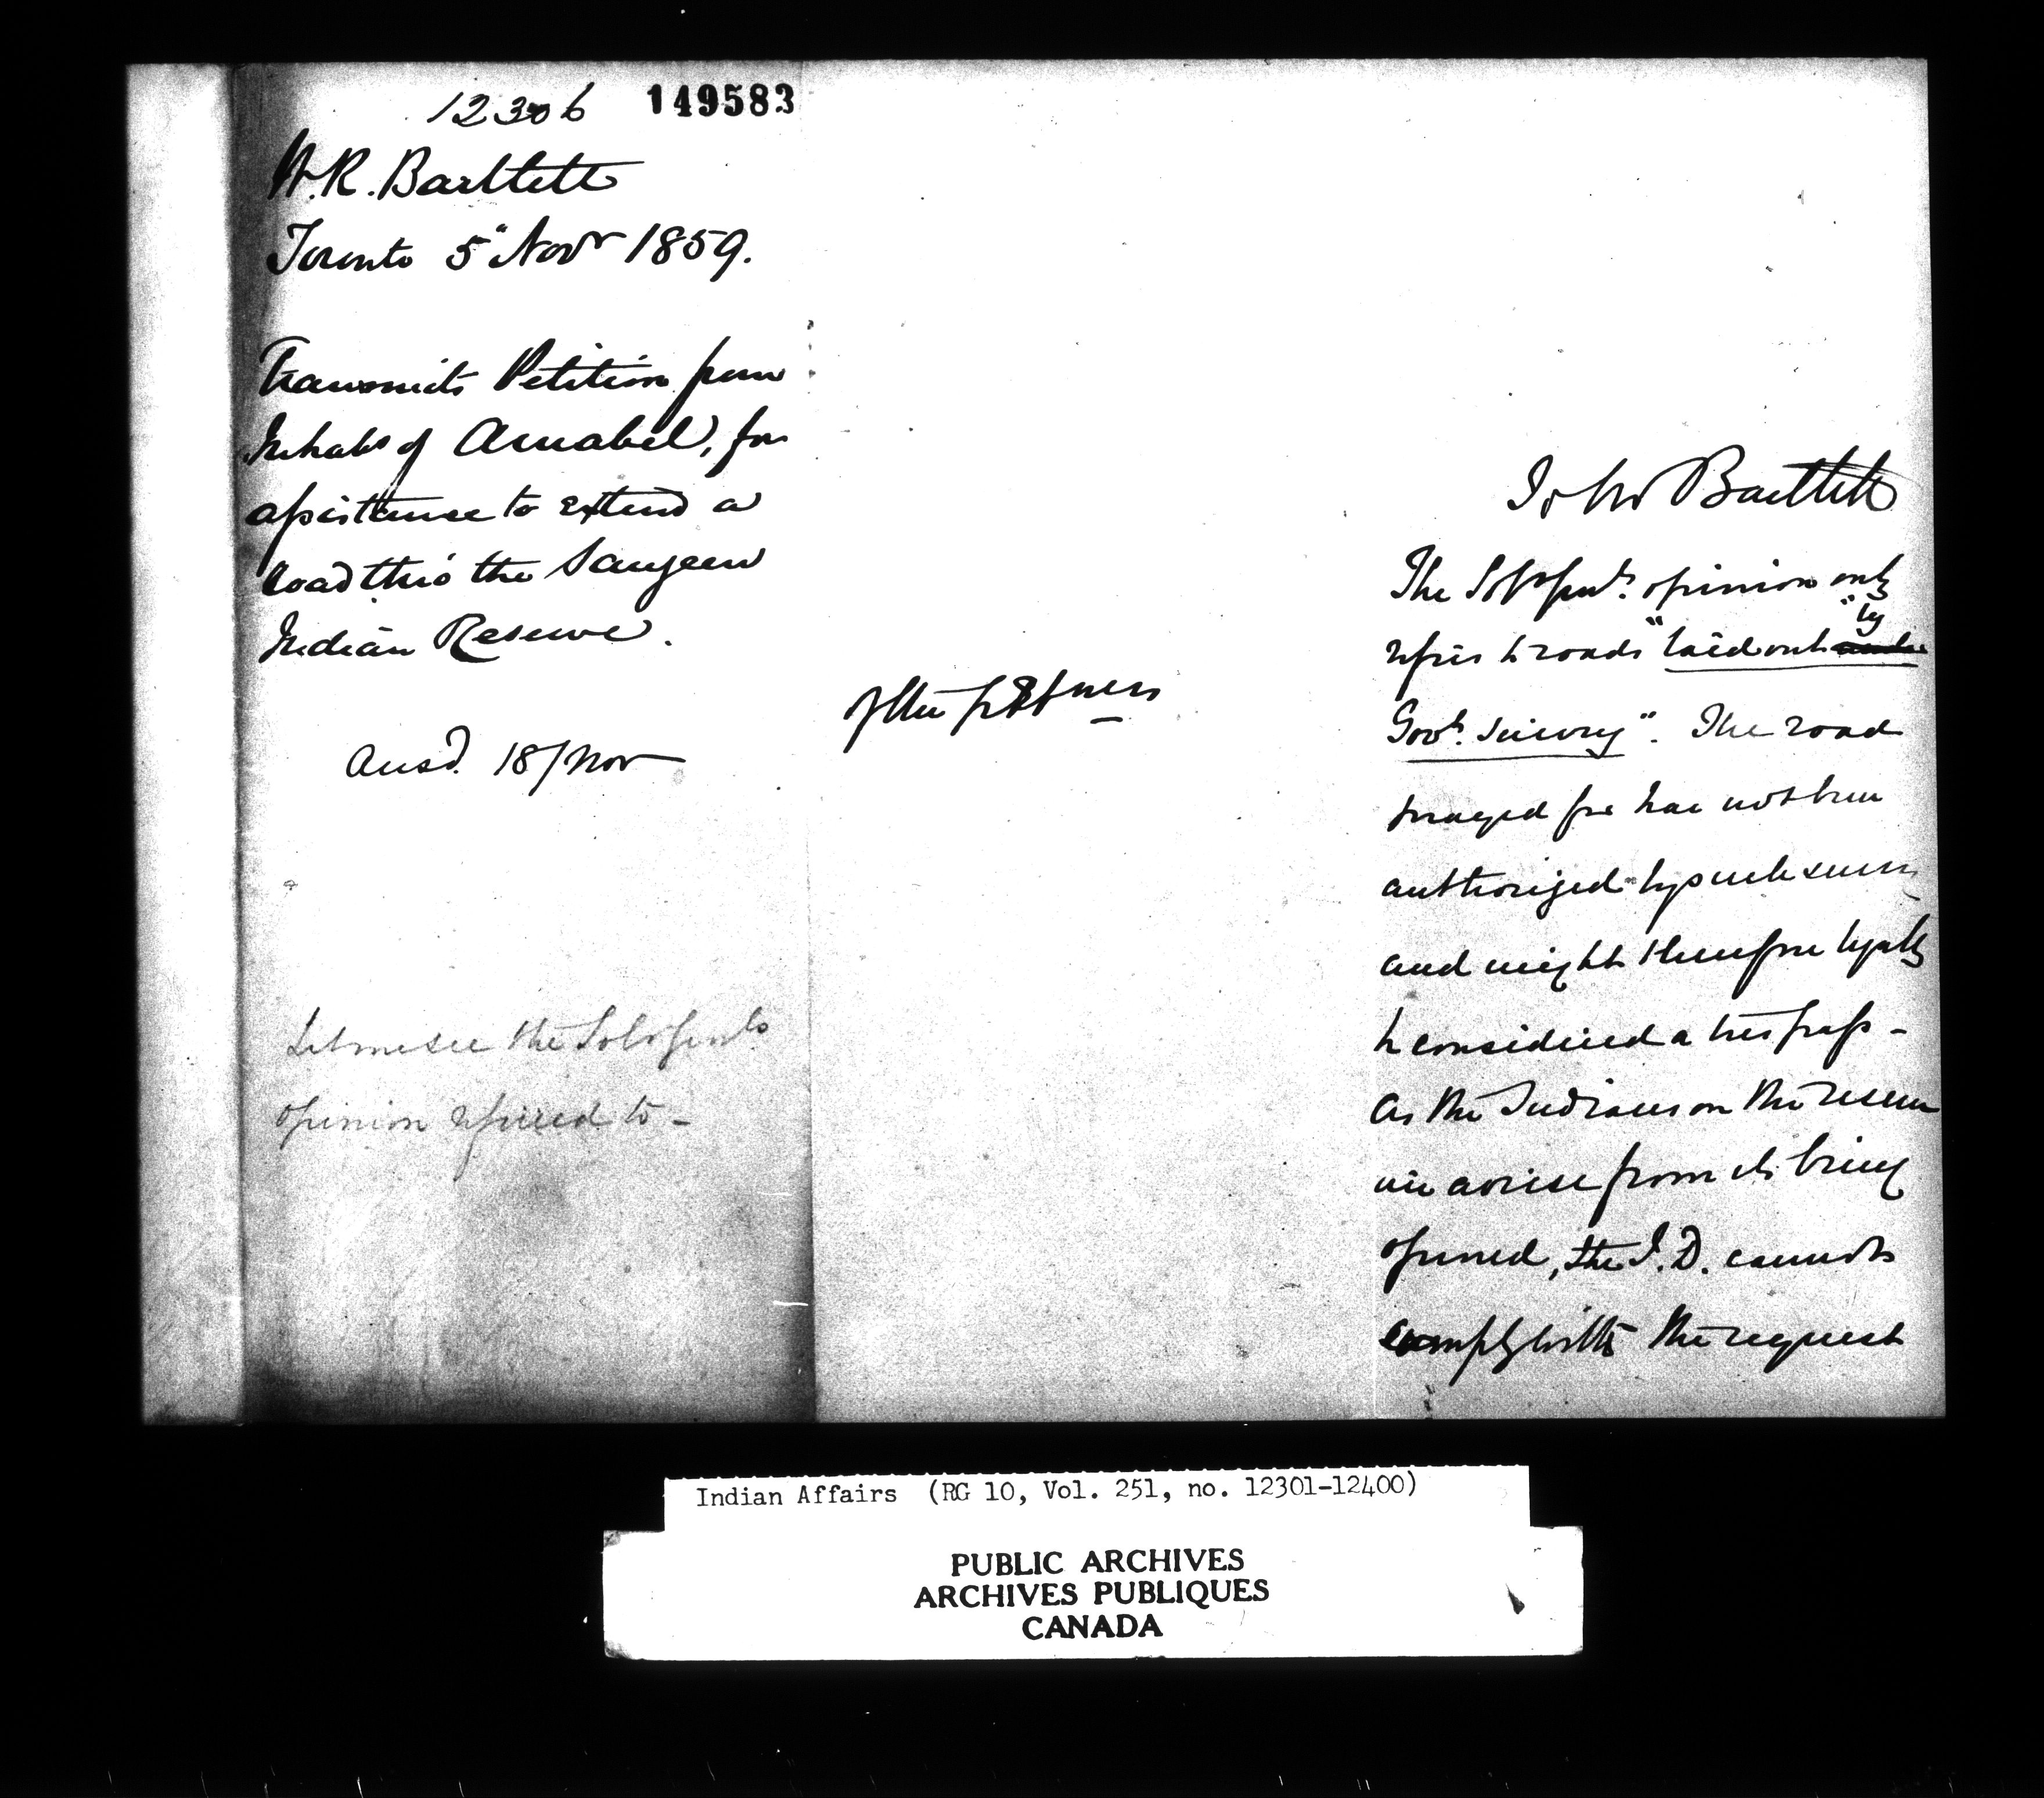 12306 149583
W.R. Bartlett
Toronto 5" Novr 1859.
Transmits Petition from
Inhabs of Amabel, for
assistance to extend a
road thro' the Saugeen
Indian Reserve.
Ansd. 18/Nov
Let me see the Sol. Genls
opinion referred to -
of the
Bartlett
The Sol Genls. opinion only
refers to roads "laid out "by
Govt. Survey". The road
prayed for has not been
authorized by such survey
and might therefore legally
be considered a trespass -
As the Indians on the reserve
are averse from its being
opened, the I.D. cannot
comply with the request
Indian Affairs (RG 10, Vol. 251, no. 12301-12400)
PUBLIC ARCHIVES
ARCHIVES PUBLIQUES
CANADA